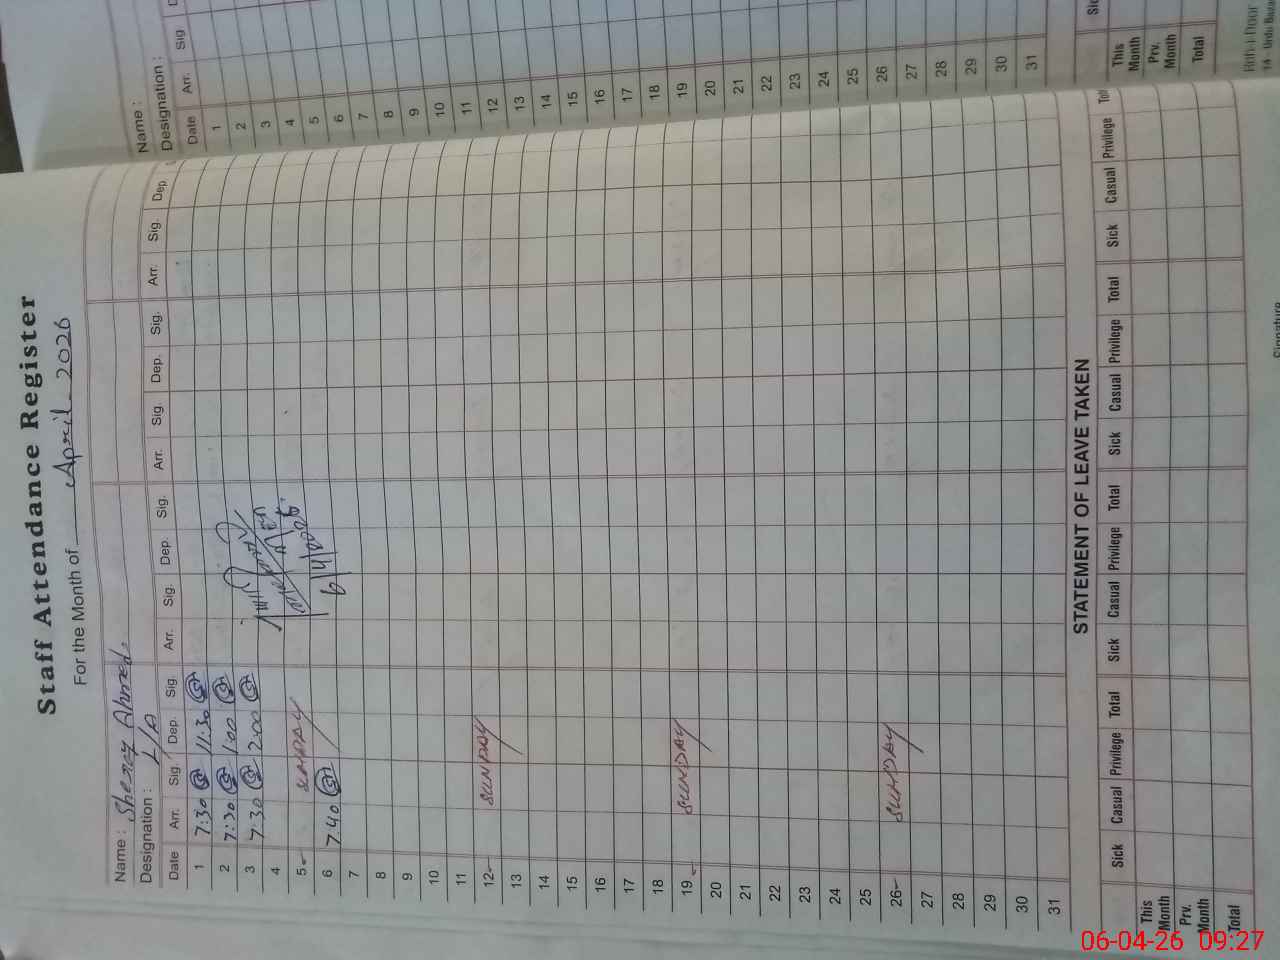 Staff Attendance Register
For the Month of April 2026
Name : Sheraz Ahmed
Designation : L/A
Date Arr. Sig. Dep. Sig. Arr. Sig. Dep. Sig. Arr. Sig. Dep. Sig. Arr. Sig. Dep
1 7:30 11:30
2 7:30 1:00
3 7:30 2:00
4
5 SUNDAY
6 7.40 6/4/2026
7
8
9
10
11
12 SUNDAY
13
14
15
16
17
18
19 SUNDAY
20
21
22
23
24
25
26 SUNDAY
27
28
29
30
31
STATEMENT OF LEAVE TAKEN
Sick Casual Privilege Total Sick Casual Privilege Total Sick Casual Privilege Total Sick Casual Privilege
This Month
Prv. Month
Total
Signature
Name :
Designation :
Date Arr. Sig
1
2
3
4
5
6
7
8
9
10
11
12
13
14
15
16
17
18
19
20
21
22
23
24
25
26
27
28
29
30
31
This Month
Prv. Month
Total
06-04-26 09:27